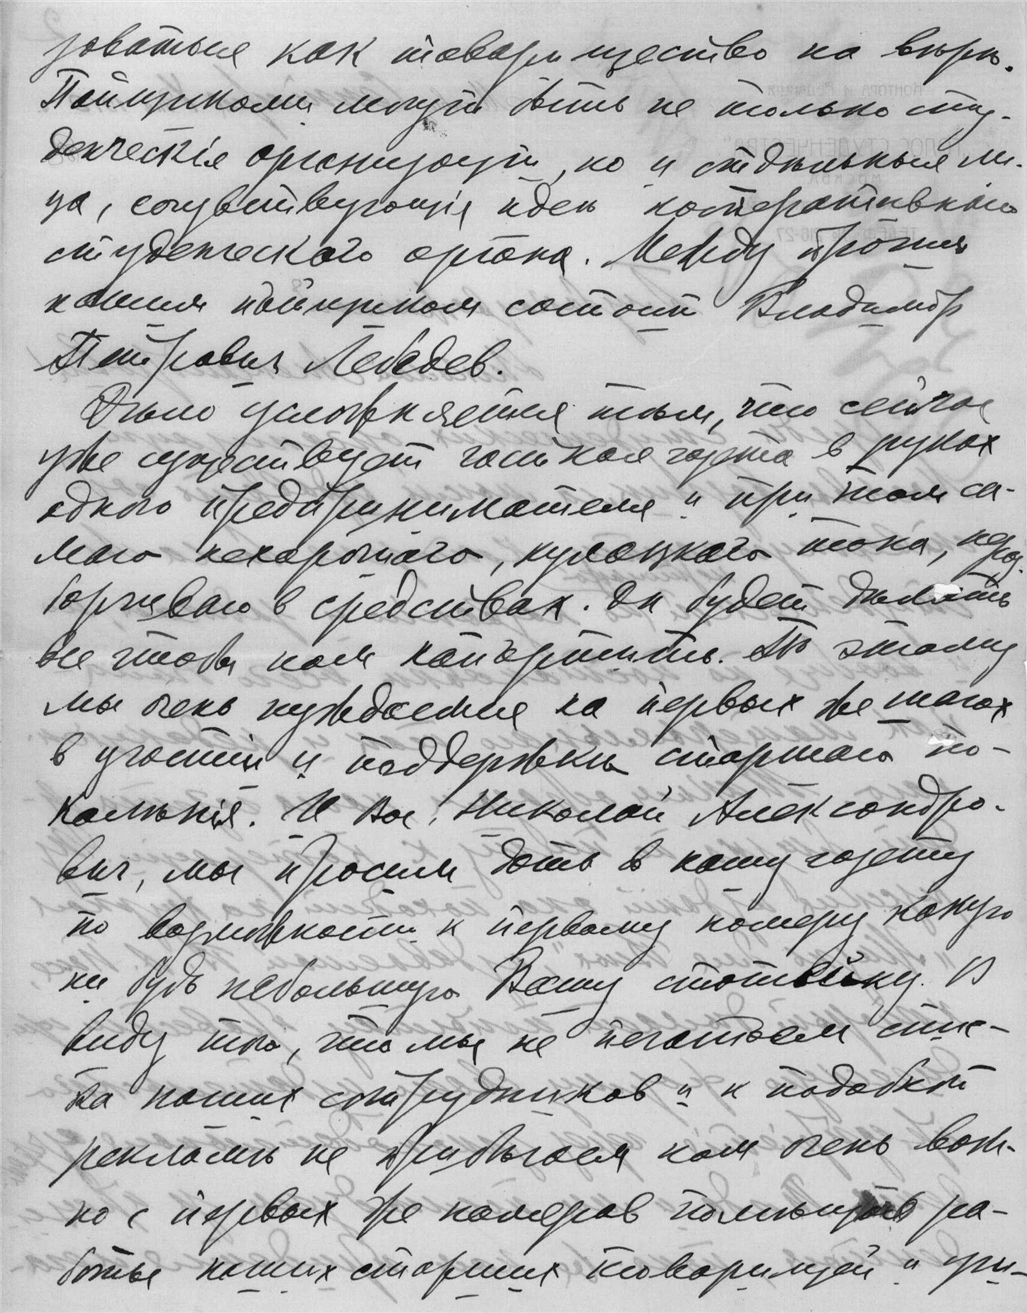 зоваться как товарищество на вѣрѣ.
Пайщиками могут быть не только сту-
денческія организаціи, но и отдѣльныя ли-
ца, сочувствующія идеи кооперативнаго
студенческаго органа. Между прочим
нашим пайщиком состоит Владимір
Петрович Лебедев.
Дѣло усложняется тѣм, что сейчас
уже существует частная газета в руках
одного предпринимателя и при том са-
маго нехорошаго, кулацкаго типа, нераз-
борчиваго в средствах. Он будет дѣлать
все чтобы нам напортить. Поэтому
мы очень нуждаемся на первых же шагах
в участіи и поддержкѣ старшаго по-
колѣнія. И Вас, Николай Александро-
вич, мы просим дать в нашу газету
по возможности к первому номеру какую
ни будь небольшую Вашу статейку. В
виду того, что мы не печатаем спис-
ка наших сотрудников и к подобной
рекламѣ не прибѣгаем нам очень важ-
но с первых же номеров помѣщать ра-
боты наших старших товарищей и учи-